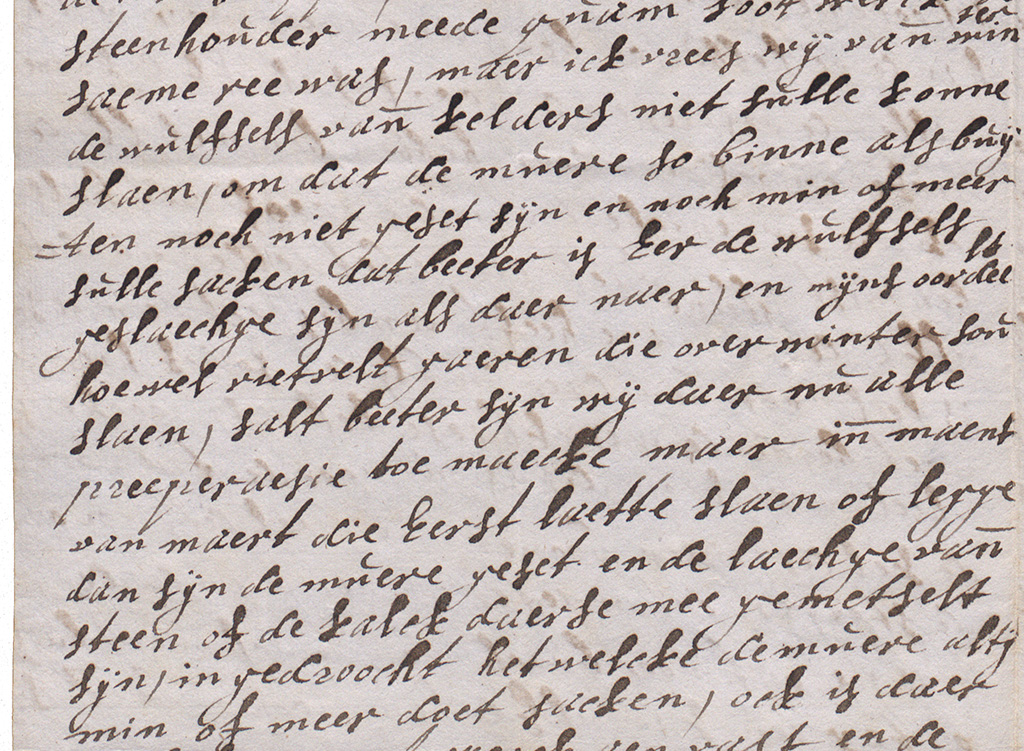 steenhouder meede quam soot werck ter
saeme ree was, maer ick vrees wy van win
de wulfsels van kelders niet sulle konne
slaen, om dat de muere so binne als buy
=ten noch niet geset syn en noch min of meer
sulle sacken dat beeter is eer de wulfsels
geslaechge syn als daer naer, en myns oordeels
hoewel rietvelt gaeren die over winter sou
slaen, salt beeter syn wy daer nu alle
preeperaesie toe maecke maer in maent
van maert die eerst laette slaen of legge
dan syn de muere geset en de laechge van
steen of de kalck daerse mee gemetselt
syn, in gedroocht het welcke de muere alty
min of meer doet sacken, ock is daer
vast en de